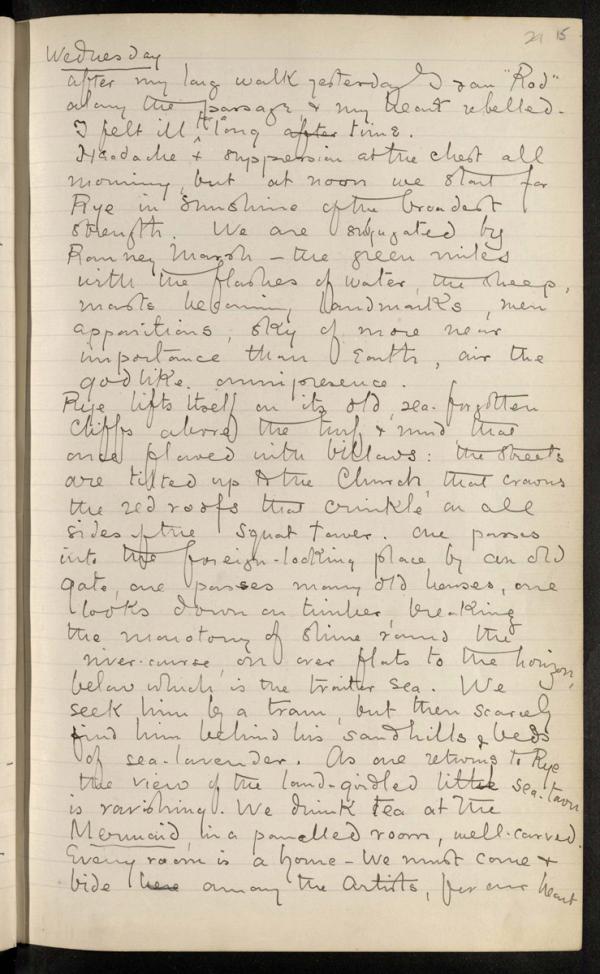 21 15
Wednesday
after my long walk yesterday I ran "Rod"
along the passage & my heart rebelled.
I felt ill a long after time.
Headache & suppression at the chest all
morning, but at noon we start for
Rye in Sunshine of the broadest
strength. We are subjugated by
Romney Marsh – the green miles
with the flashes of water, the sheep,
masts becoming landmarks, men
apparitions, sky of more near
importance than Earth, air the
godlike omnipresence.
Rye lifts itself on its old, sea-forgotten
cliffs above the turf & mud that
once flowed with billows: the streets
are tilted up to the Church, that crowns
the red roofs that crinkle on all
sides of the squat tower. One passes
into the foreign-looking place by an old
gate, one passes many old houses, one
looks down on timber, breaking
the monotony of slime round the
river-course, on over flats to the horizon,
below which is the traitor sea. We
seek him by a tram, but then scarcely
find him behind his sandhills & beds
of sea-lavender. As one returns to Rye
the view of the land-girdled little sea-town
is ravishing. We drink tea at the
Mermaid, in a panelled room, well-carved.
Every room is a home – We must come &
bide here among the Artists, for our heart